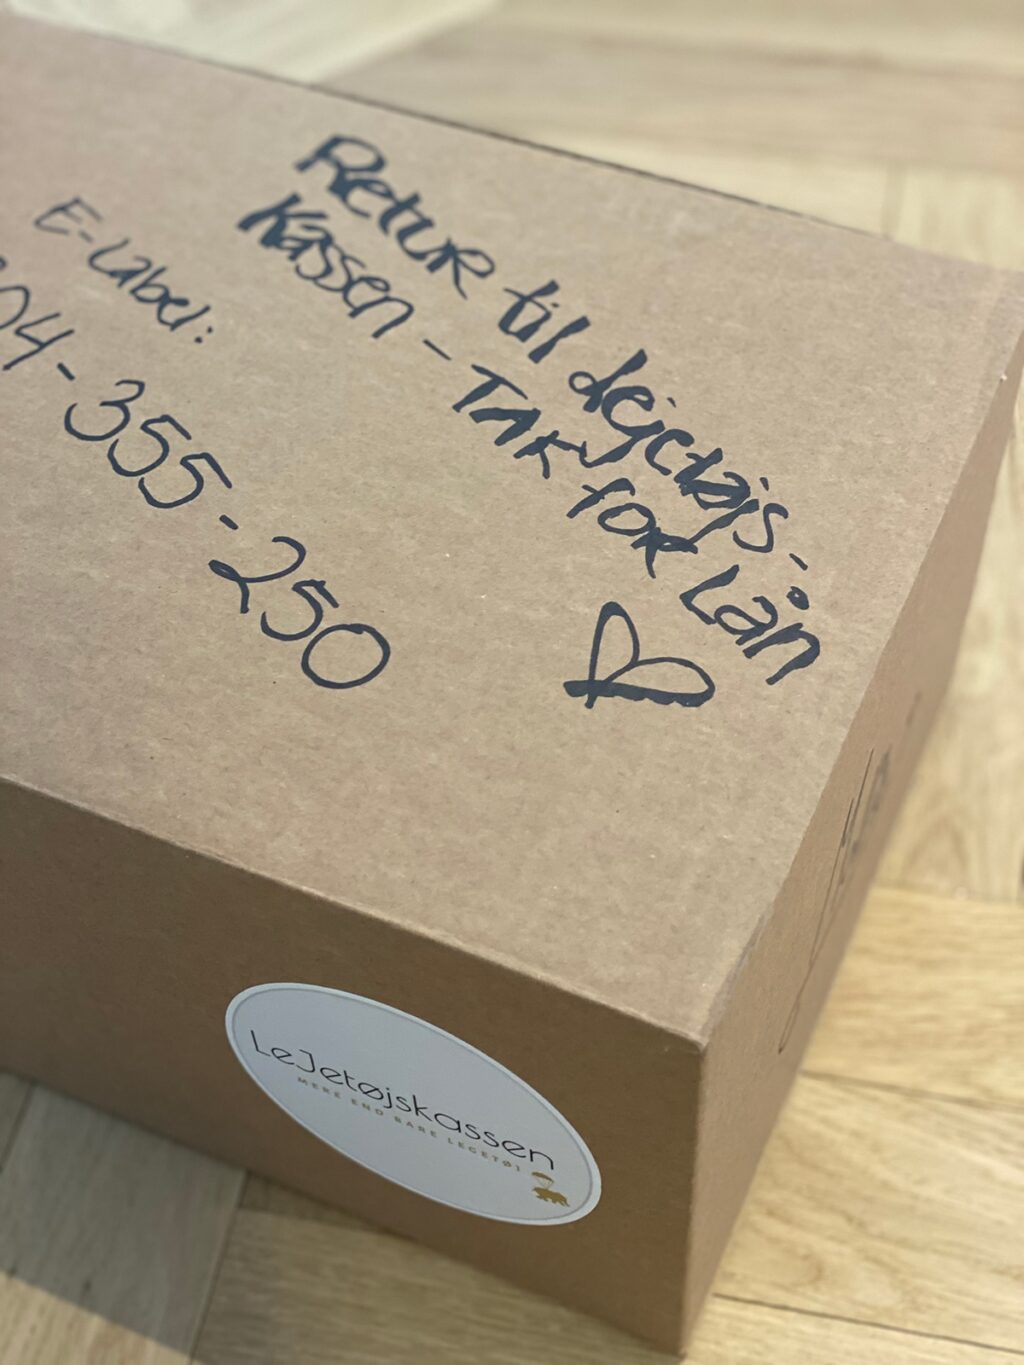 Retur til lejetøjs-
Kassen - TAK for Lån
E-Label:
04-355-250
LeJetøjskassen
MERE END BARE LEGETØJ